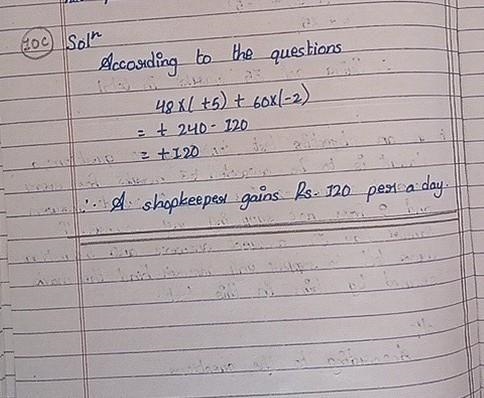 10c Solⁿ
According to the questions
48x(+5) + 60x(-2)
= + 240 - 120
= +120
∴ A shopkeeper gains Rs. 120 per a day.